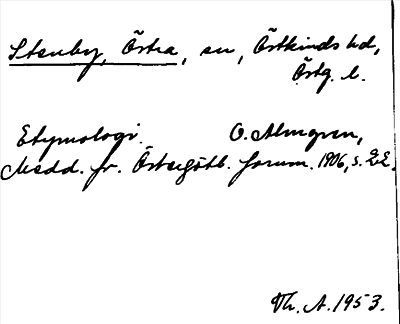 Stenby, Östra, sn, Östkinds hd,
Östg. l.
Etymologi. O. Almgren,
Medd. fr. Östergötl. fornm. 1906, s.
Th. A. 1953.